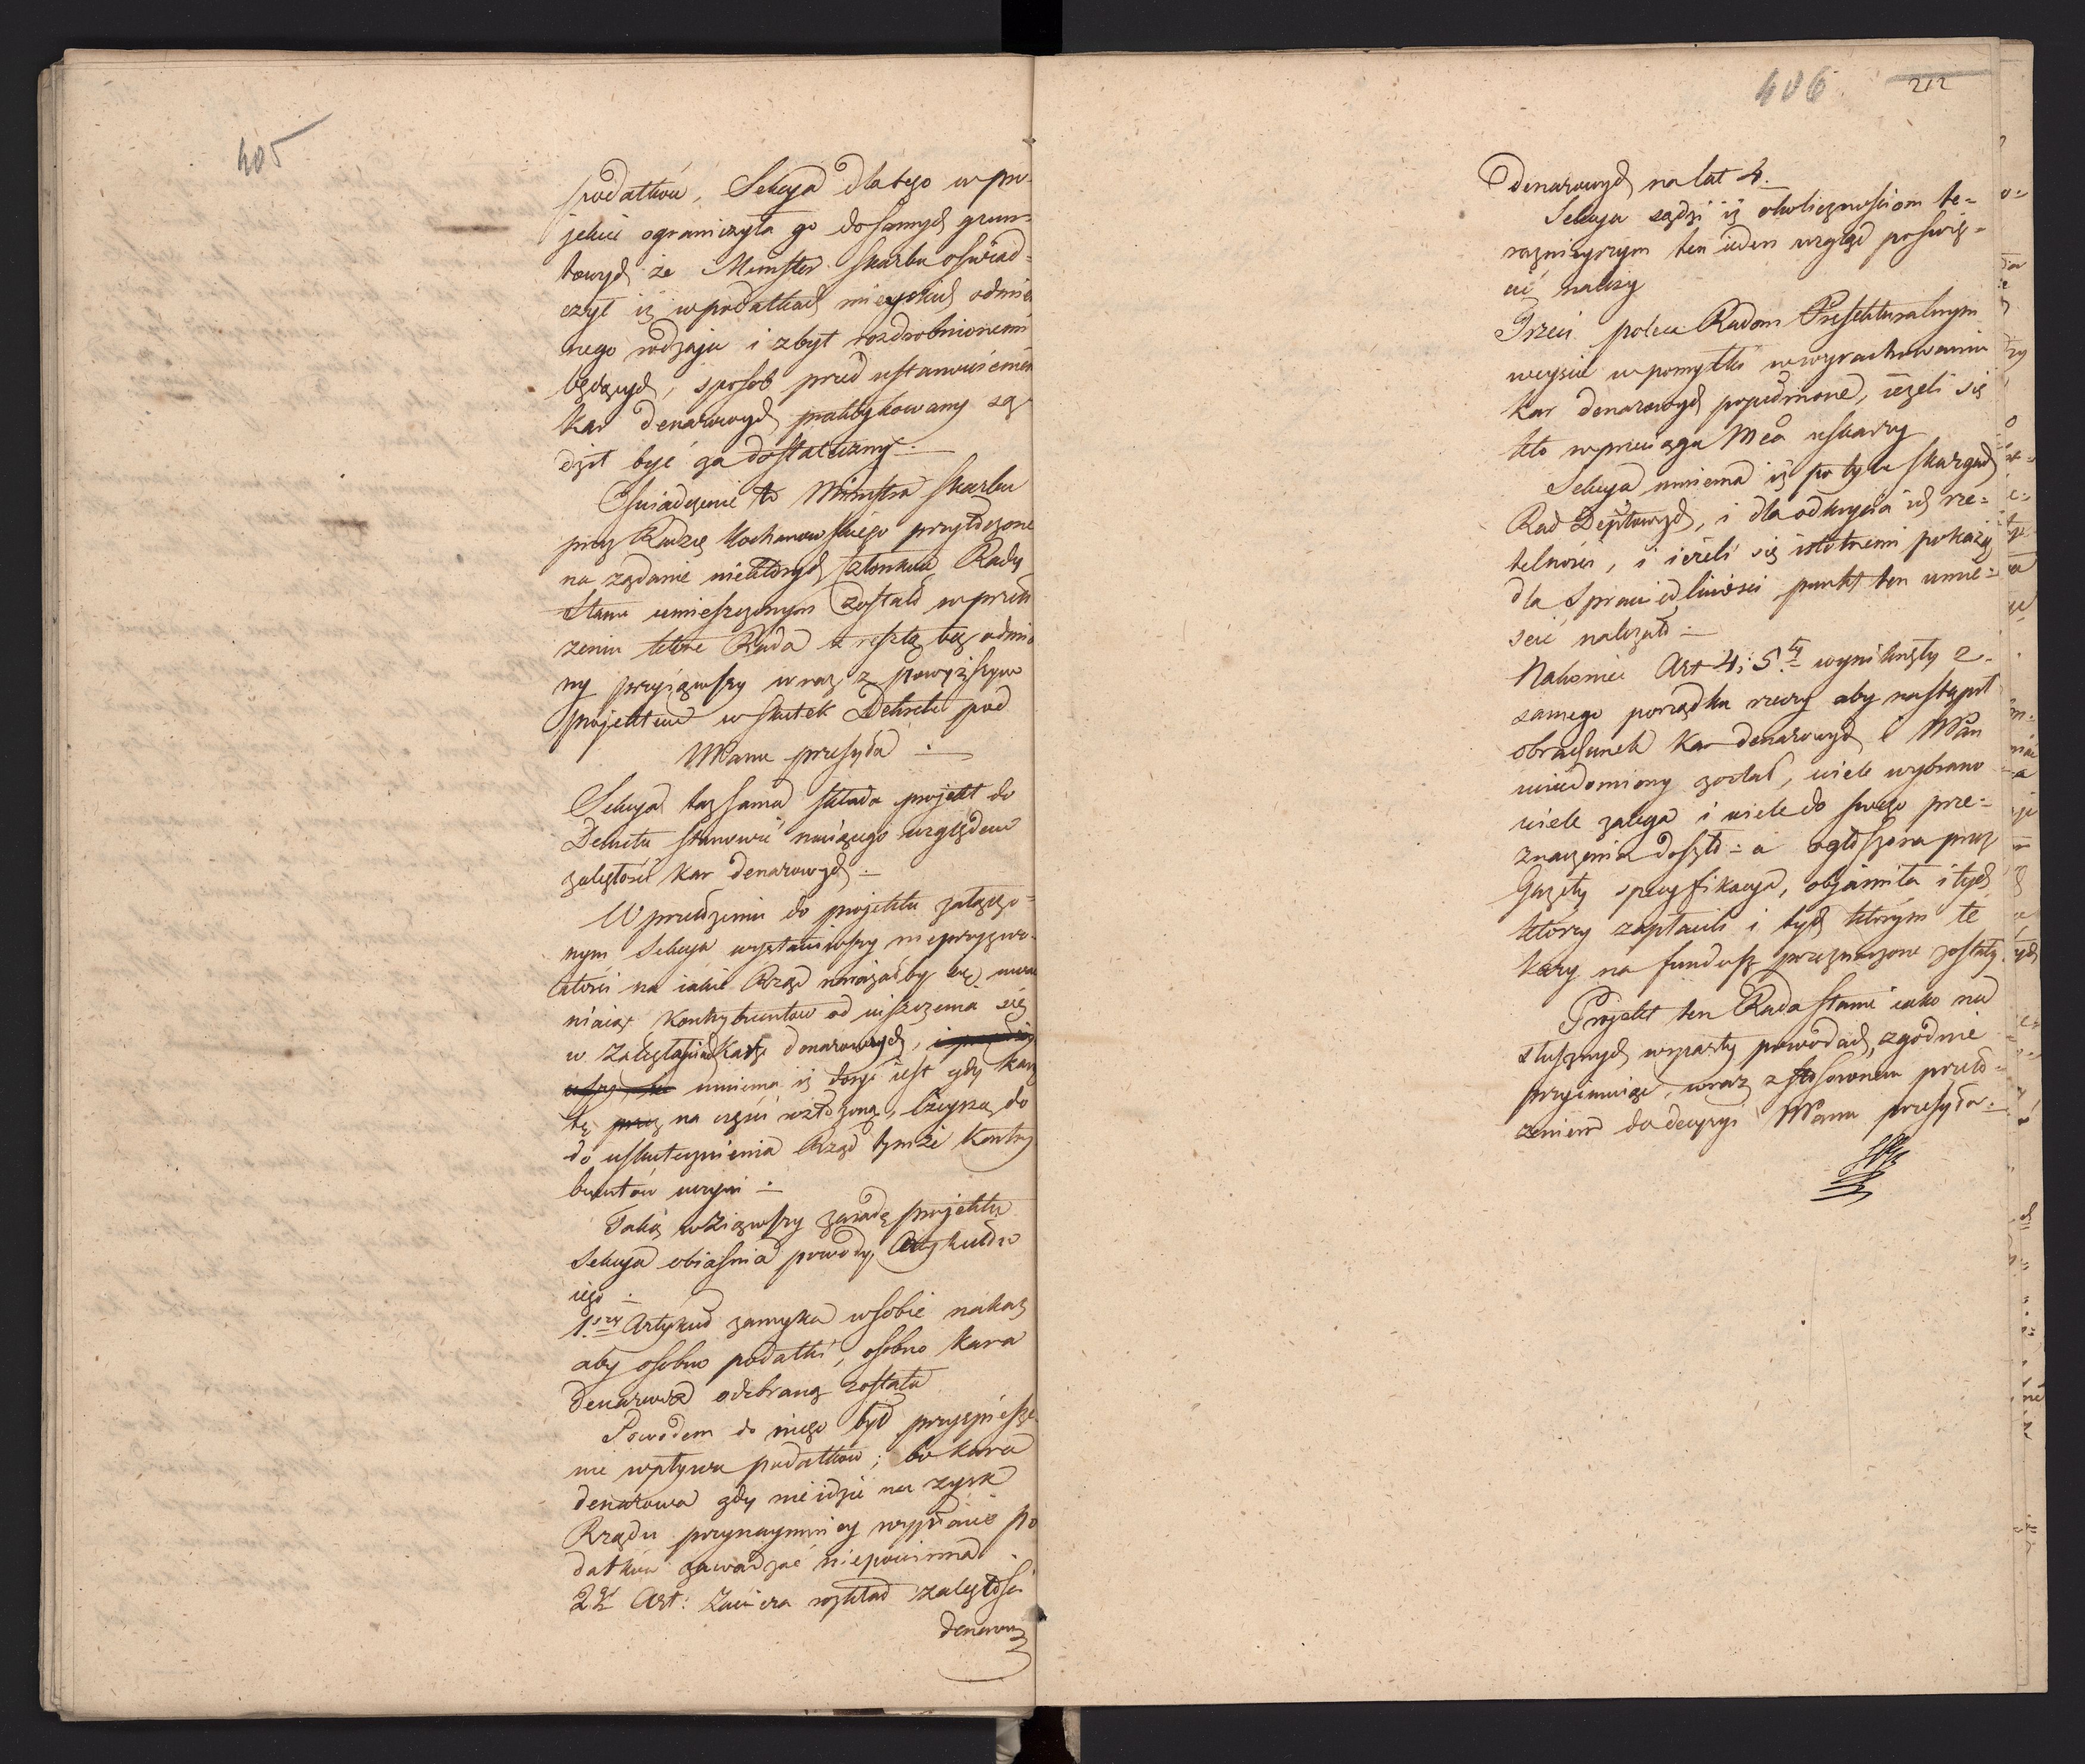 405
podatków, Sekcya dla tego w pro-
jekcie ograniczyła go do samych grun-
towych że Minister Skarbu oświad-
czył iż w podatkach mieyskich odmien
nego rodzaju i zbyt rozdrobnionemi
będących, sposob przed ustanowieniem
kar denarowych praktykowany są-
dził być za dostateczny.—
Oświadczenie to Ministra Skarbu
przez Radzcę Kochanowskiego przyłączone
na żądanie niektórych Członków Rady
Stanu umieszczonym zostało w przeło
żeniu które Rada z resztą bez odmia
ny przyiąwszy wraz z powyższym
projektem w skutek Dekretu pod
WPanu przesyła.—
Sekcya taż sama składa projekt do
Dekretu stanowić maiącego względem
zaległości kar denarowych.—
W przełożeniu do projektu załączo-
nym Sekcya wystawiwszy nieprzyzwo-
itości na iakie Rząd narażałby się uwal
niaiąc kontrybuentów od uiszczenia się
w zaległościach kar denarowych,
mniema iż dosyć iest gdy karę
tę na części rozłożoną, lżeyszą do
do uskutecznienia Rząd tymże kontry
buentów uczyni.—
Taką wziąwszy zasadę projektu
Sekcya obiaśnia powody Artykułów
iego.
1.szy Artykuł zamyka w sobie nakaz
aby osobno podatki, osobno kara
denarowa odebraną została
Powodem do niego był przyspiesze
nie wpływu podatków; bo kara
denarowa gdy nie idzie na zysk
Rządu przynaymniey wypłacie po
datków zawadzać niepowinna.
2gi Art: Zawiera rozkład zaległości
denarow
406 212
Denarowych na lat 4.—
Sekcya sądzi iż okolicznościom te-
raznieyszym ten ieden wzgląd poświę-
cić należy
Trzeci poleca Radom Prefekturalnym
weyście w pomyłki w wyrachowaniu
kar denarowych popełnione, ieżeli się
kto w przeciągu Mca uskarży
Sekcya mniema iż po tylu skargach
Rad Deptowych, i dla odkrycia ich rze-
telności, i ieżeli się istotnemi pokażą
dla Sprawiedliwości punkt ten umie-
ścić należało.—
Nakoniec Art 4 i 5.ty wyniknęły z
samego porządku rzeczy aby nastąpił
obrachunek kar denarowych i WPan
uwiadomiony został, wiele wybrano
wiele zalega i wiele do swego prze-
znaczenia doszło:— a ogłoszona przez
Gazety specyfikacya, obiaśniła i tych
którzy zapłacili i tych którym te
kary na fundusz przeznaczone zostały.
Projekt ten Rada Stanu iako na
słusznych wsparty powodach, zgodnie
przyimuiąc, wraz z stosownem przeło-
żeniem do decyzyi WPanu przesyła.—